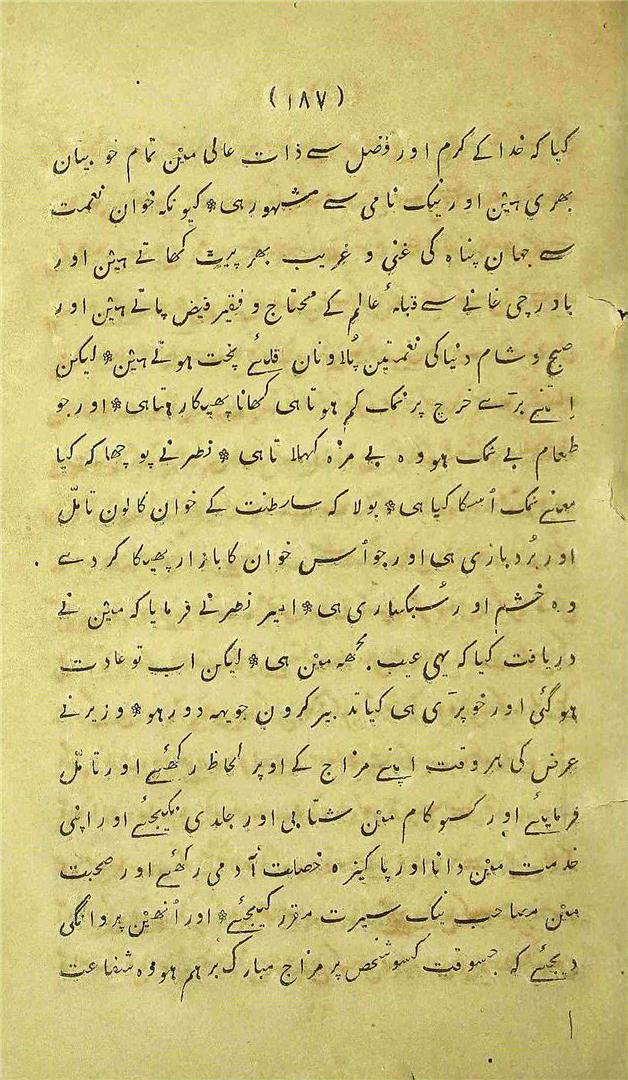 (۱۸۷)
کیا کہ خدا کے کرم اور فضل سے ذات عالی مین تمام خوبیان
بھری ہین اور نیک نامی سے مشہور ہی * کیونکہ خوان نعمت
سے جہان پناہ کی غنی و غریب بھر پیٹ کھاتے ہین اور
باورچی خانے سے قبلۂ عالم کے محتاج و فقیر فیض پاتے ہین اور
صبح و شام دنیا کی نعمتین پُلاو نان قلئے پخت ہوتے ہین * لیکن
اِتنے بڑے خرچ پر نمک کم ہوتا ہی کھانا پھیکا رہتا ہی * اور جو
طعام بے نمک ہو وہ بے مزہ کہلاتا ہی * نصر نے پوچھا کہ کیا
معنے نمک اُسکا کیا ہی * بولا کہ سلطنت کے خوان کا لون تامّل
اور بُردباری ہی اور جو اُس خوان کا بازار پھیکا کر دے
وہ خشم اور سُبکساری ہی * امیر نصر نے فرمایا کہ مین نے
دریافت کیا کہ یہی عیب مجھہ مین ہی * لیکن اب تو عادت
ہو گئی اور خو پڑی ہی کیا تدبیر کرون جو یہہ دور ہو * وزیر نے
عرض کی ہر وقت اپنے مزاج کے اوپر لحاظ رکھئے اور تامّل
فرمایئے اور کسو کام مین شتابی اور جلدی نکیجئے اور اپنی
خدمت مین دانا اور پاکیزہ خصلت آدمی رکھئے اور صحبت
مین مصاحب نیک سیرت مقرر کیجئے * اور اُنھین پروانگی
دیجئے کہ جسوقت کسو شخص پر مزاج مبارک برہم ہو وہ شفاعت